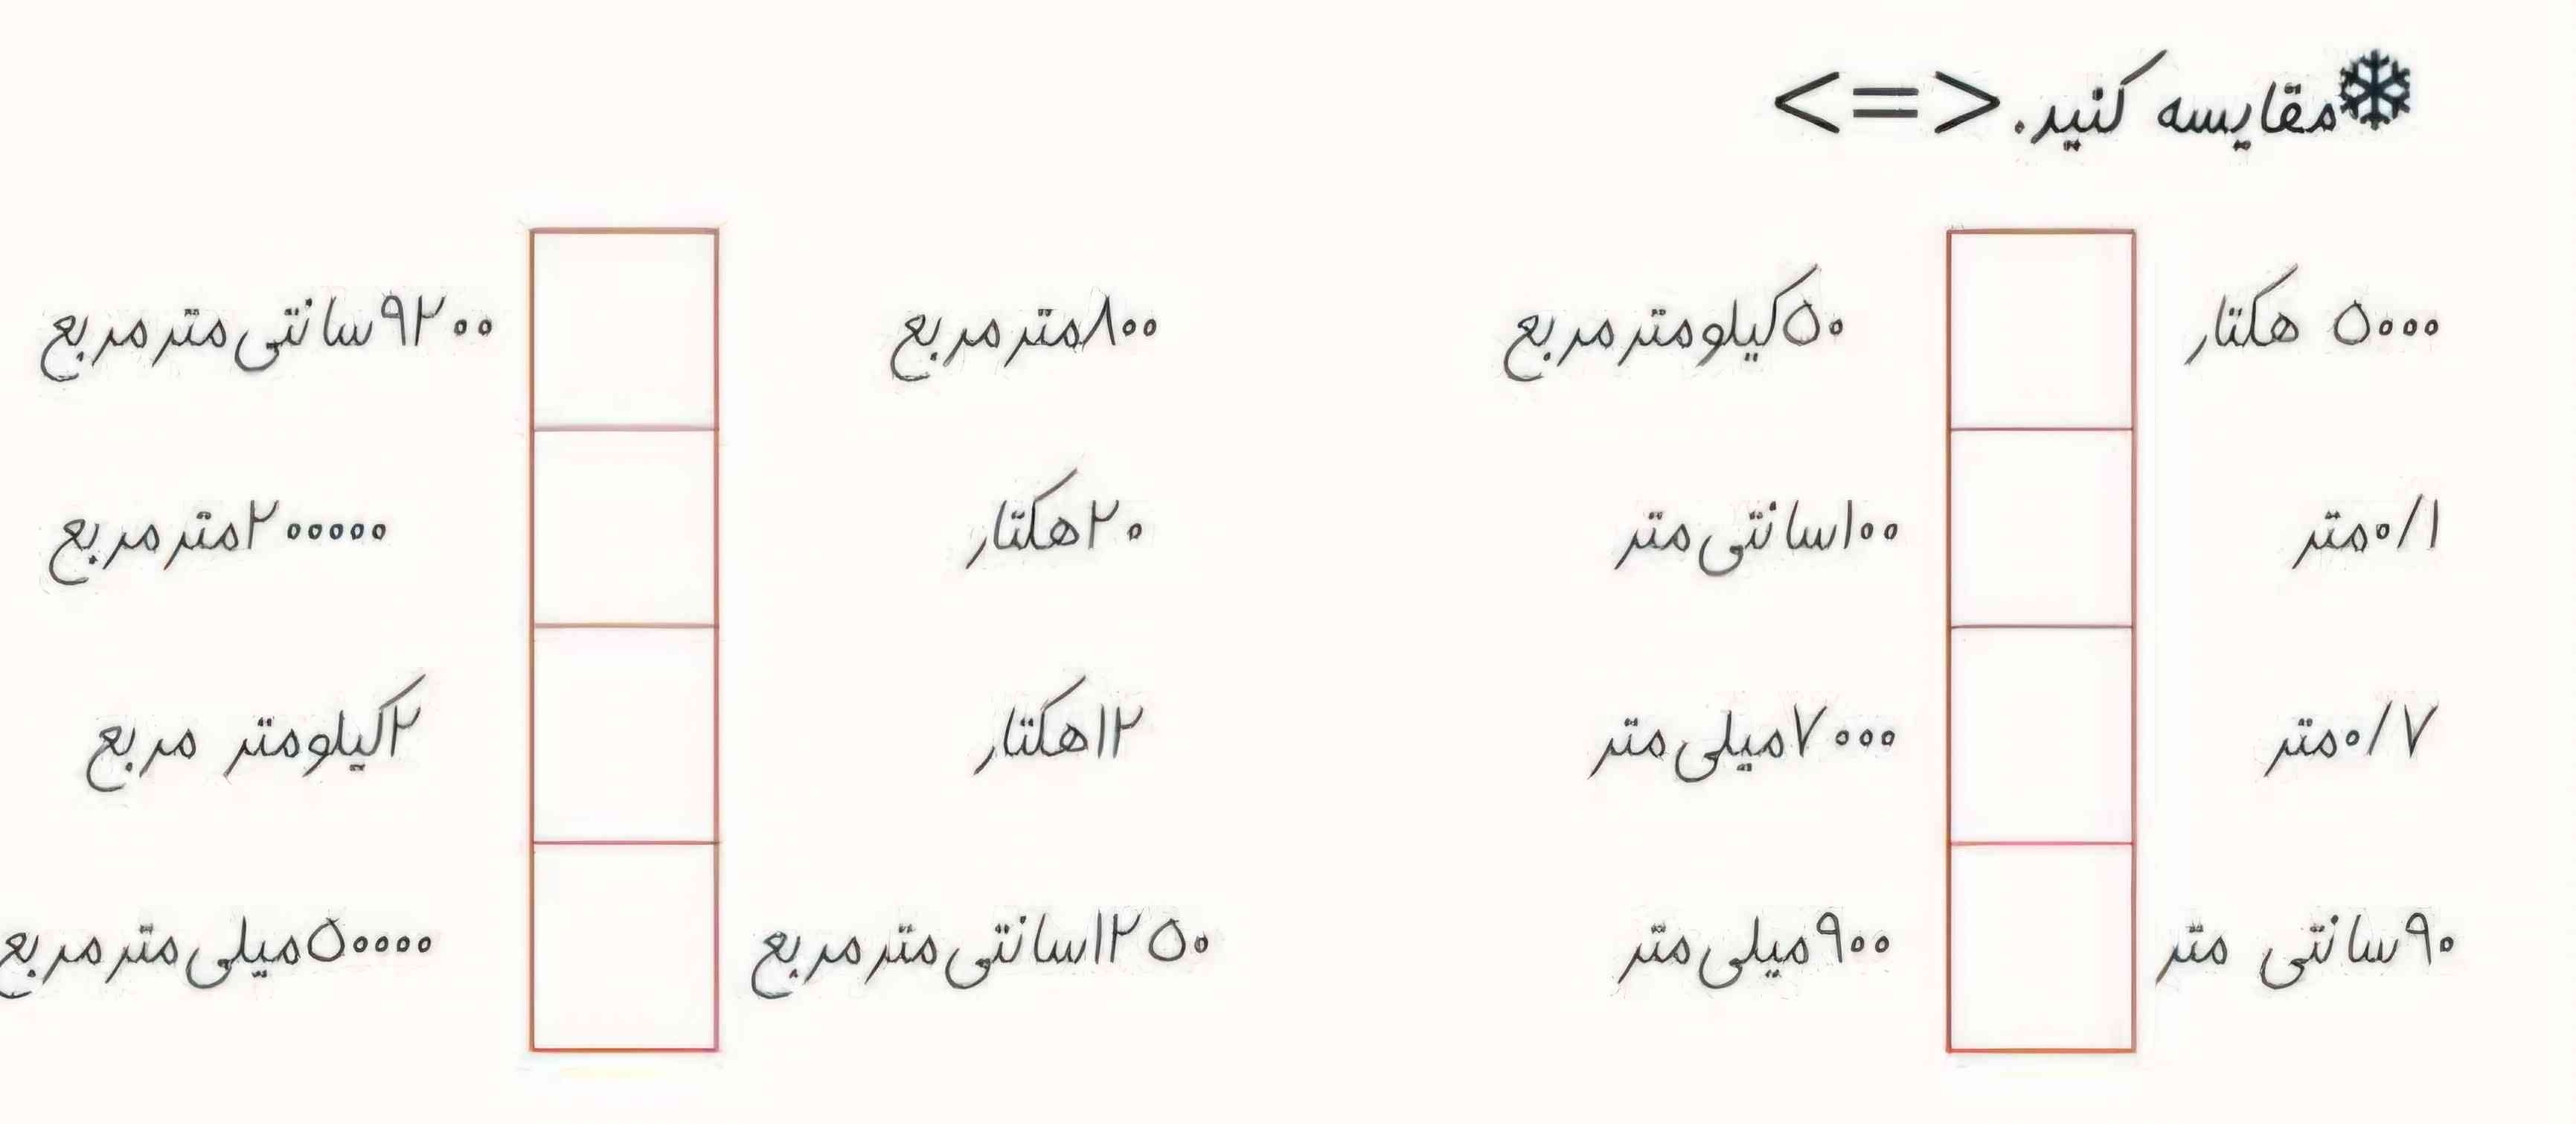 ❄مقایسه کنید. <=>
۵۰۰۰ هکتار ۵۰کیلومترمربع
۰/۱متر ۱۰۰سانتی‌متر
۰/۷متر ۷۰۰۰میلی‌متر
۹۰سانتی متر ۹۰۰میلی‌متر
۸۰۰مترمربع ۹۲۰۰سانتی‌مترمربع
۲۰هکتار ۲۰۰۰۰۰مترمربع
۱۲هکتار ۲کیلومتر مربع
۱۲۵۰سانتی‌مترمربع ۵۰۰۰۰میلی‌مترمربع